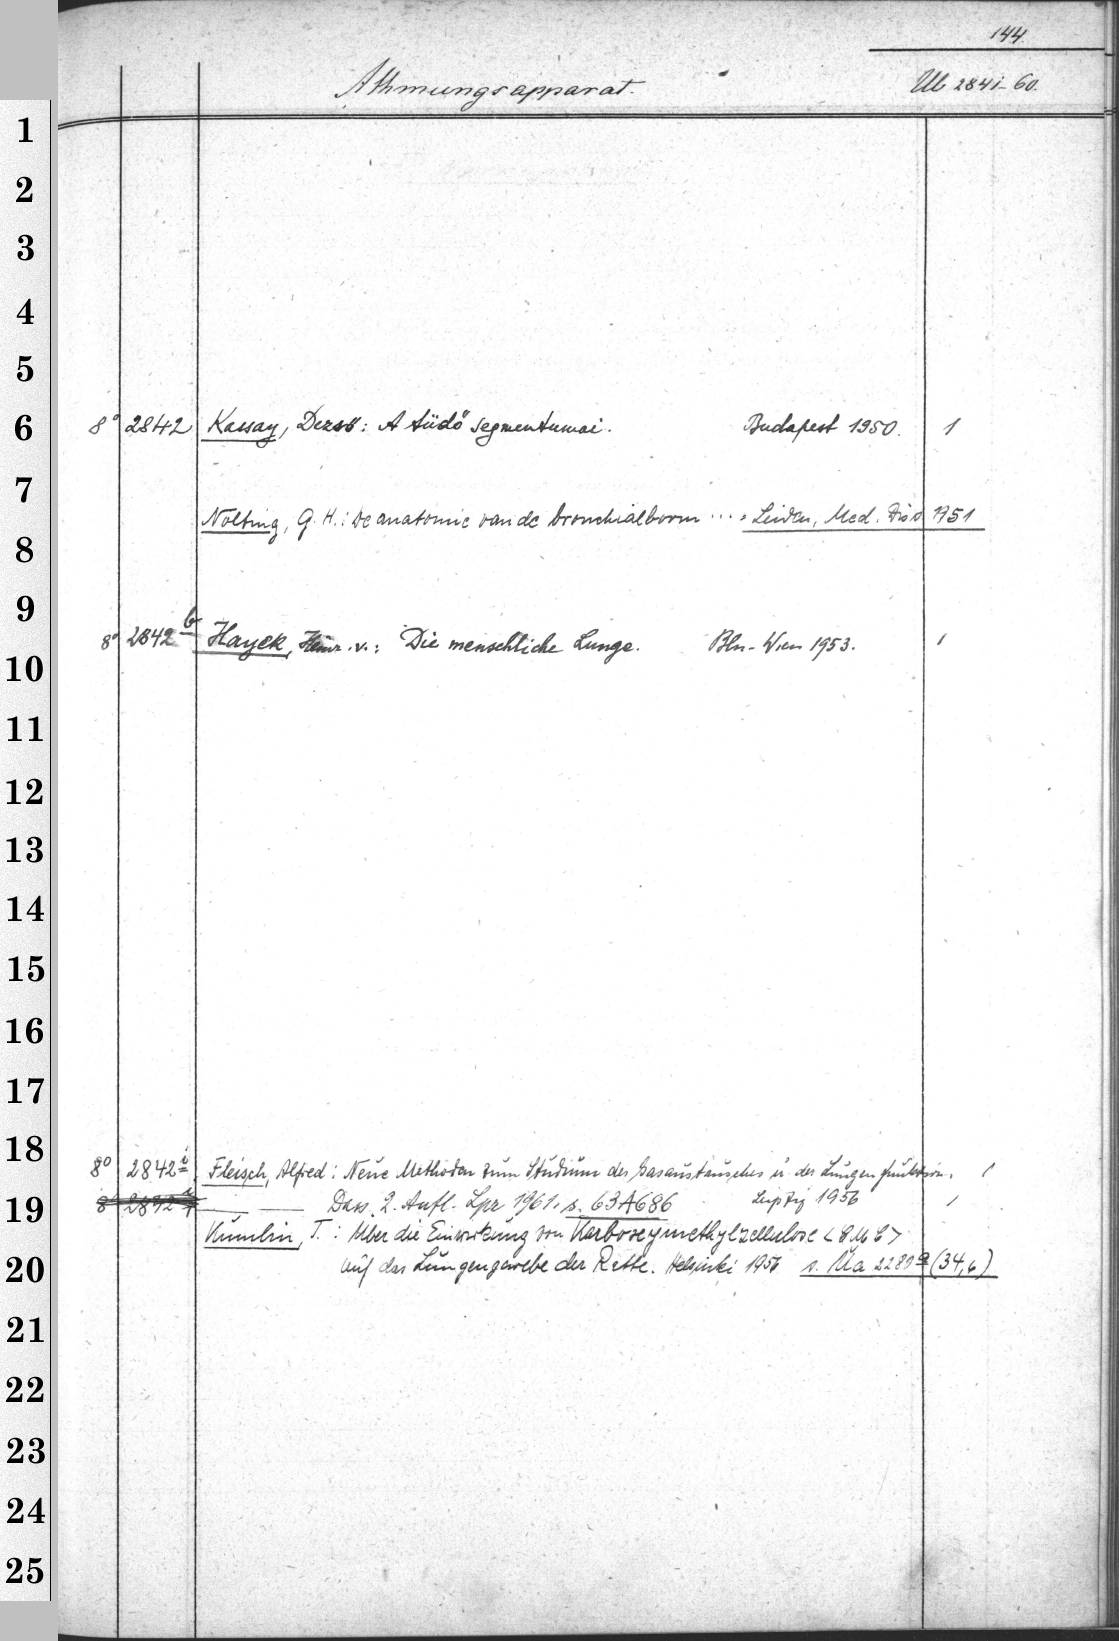 144.
Athmungsapparat. Ub 2841-60.
1
2
3
4
5
6 8° 2842 Kassay, Dezső: A tüdő segmentumai. Budapest 1950. 1
7
Nolting, G. H.: De anatomie van de bronchialboom .... Leiden, Med. Diss 1951
8
9
8° 2842 b Hayck, Heinr. v.: Die menschliche Lunge. Bln-Wien 1953. 1
10
11
12
13
14
15
16
17
18 8° 2842 i Fleisch, Alfred: Neue Methoden zum Studium des Gasaustausches u der Lungenfunktion. 1
19 8° 2842 — — Dass. 2. Aufl. Lpz 1961. s. 63A686 Leipzig 1956 1
Kumlin, T.: Über die Einwirkung von Karboxymethylzellulose <CMC>
20 auf das Lungengewebe der Ratte. Helsinki 1956 s. Ua 2289 a (34,6)
21
22
23
24
25